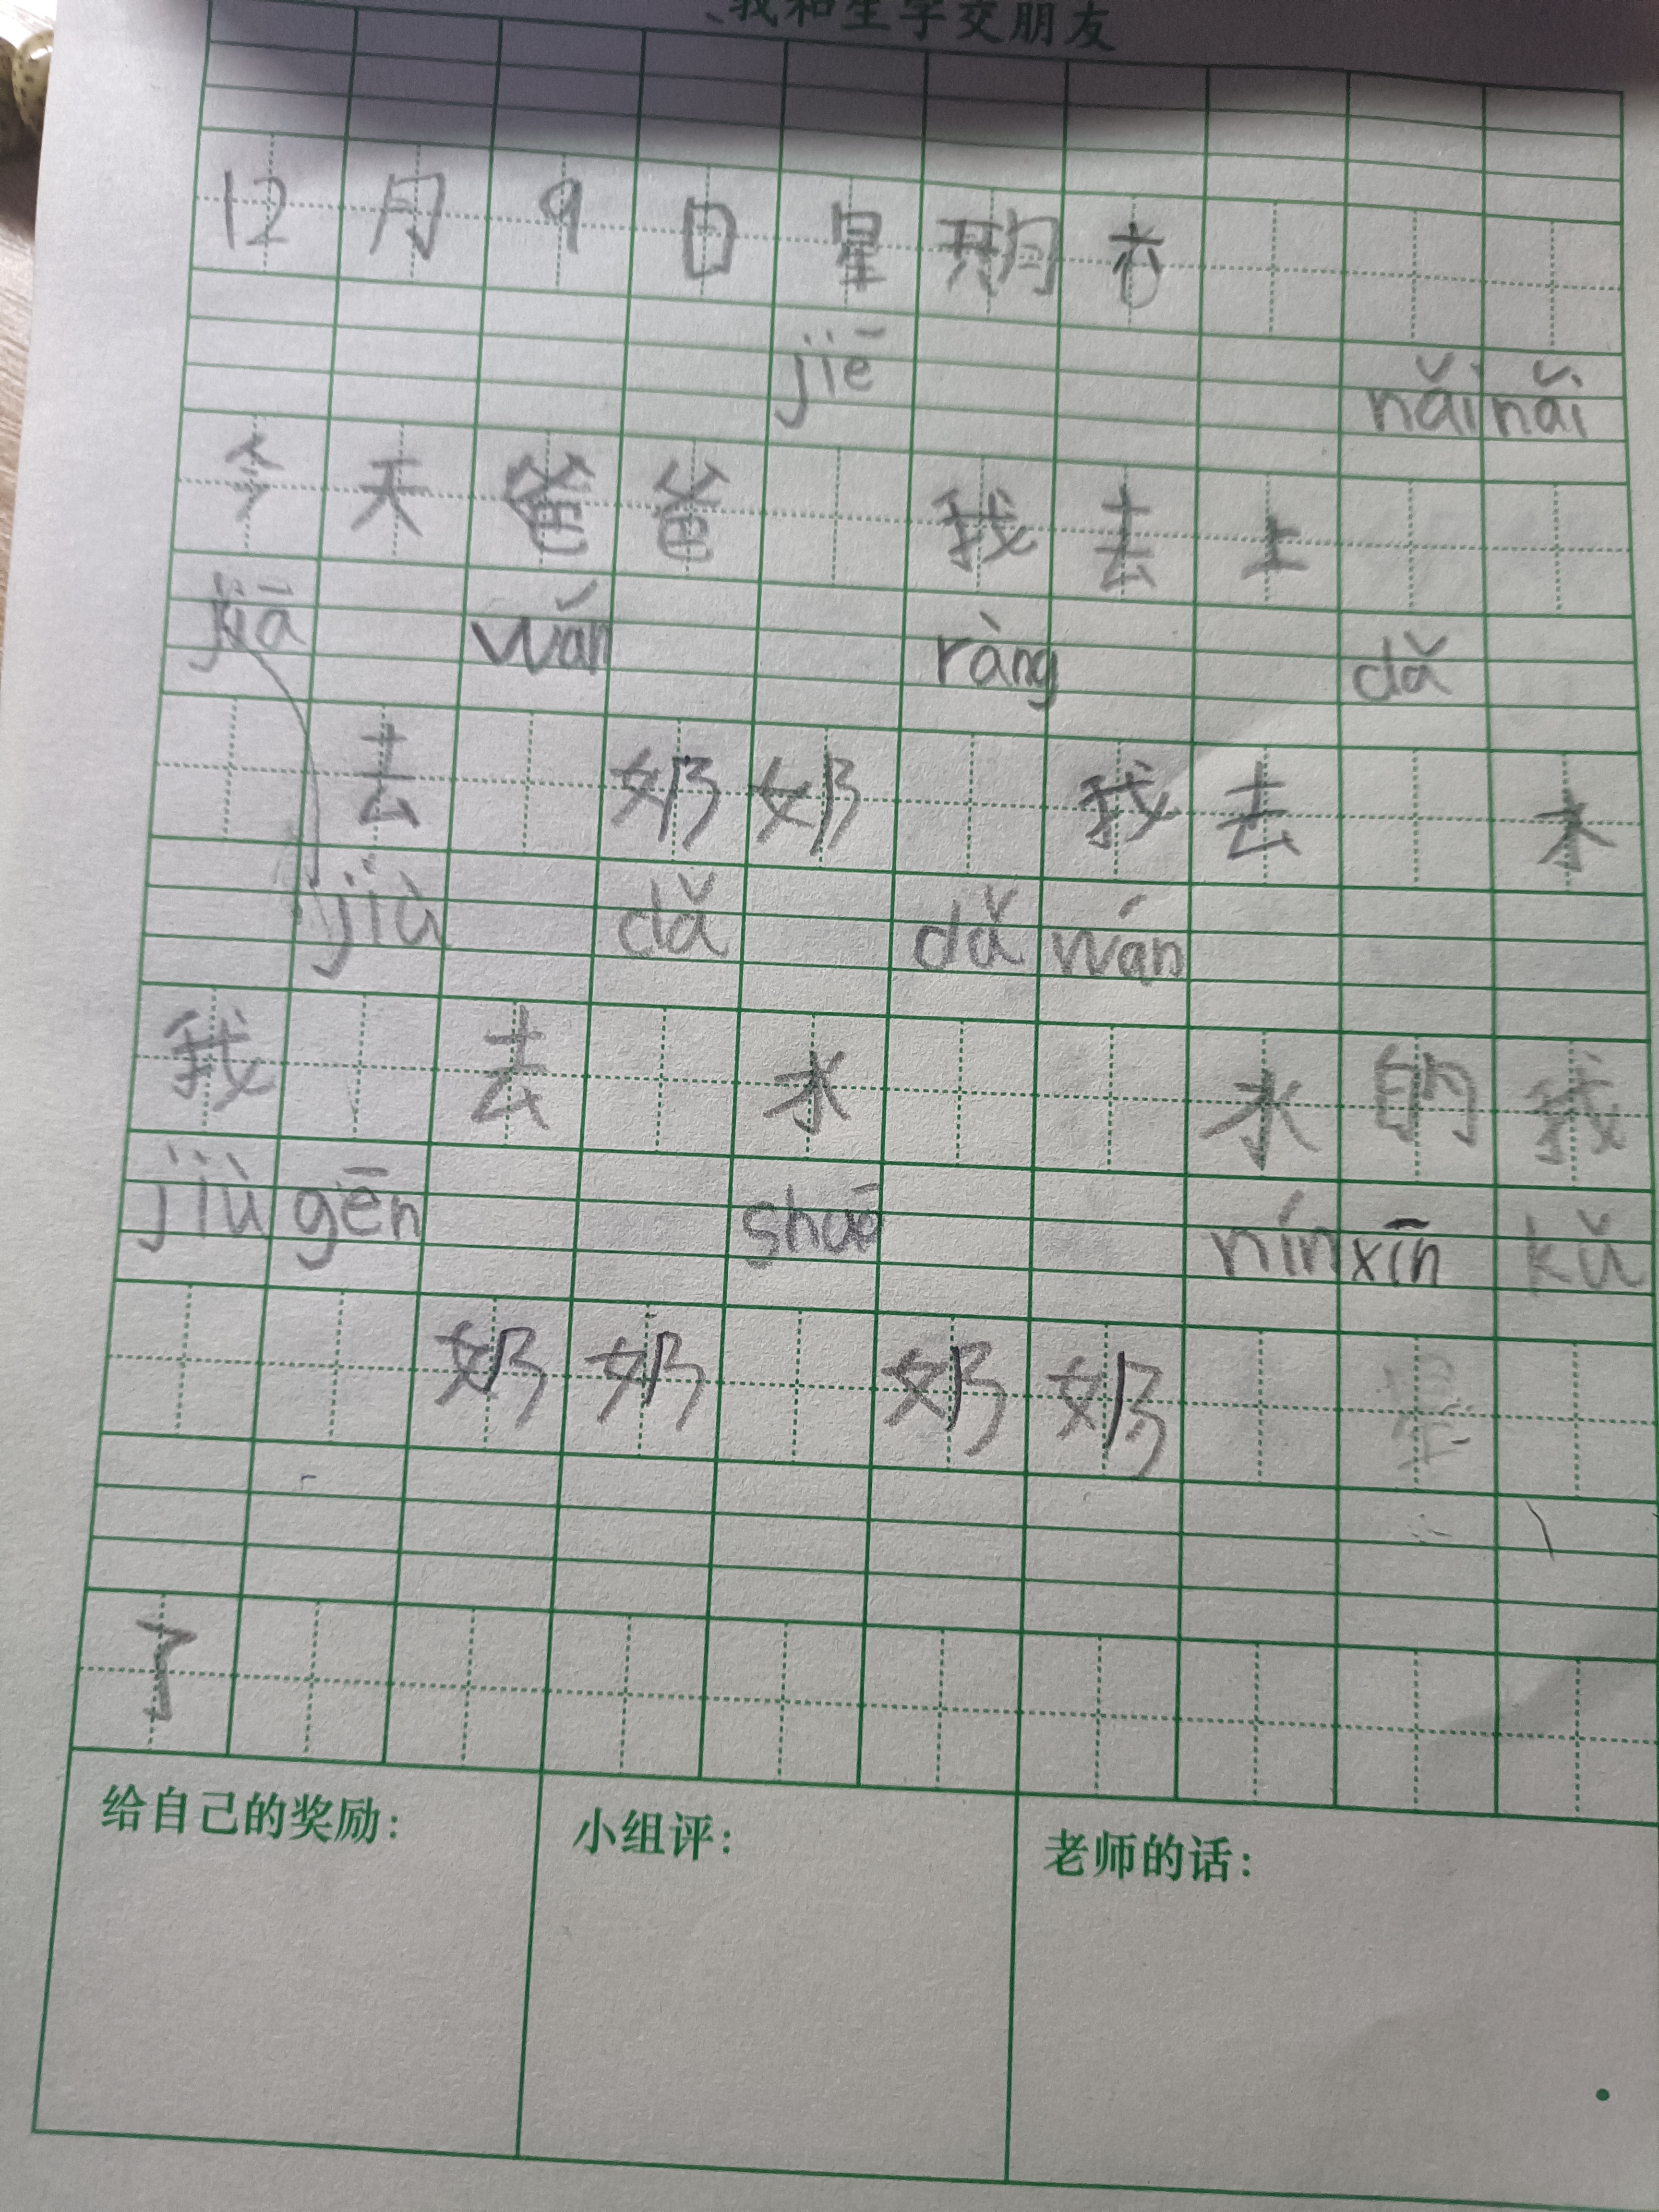 我和生字交朋友
12月9日星期六
jiē nǎi nǎi
今天爸爸 我去上
jiā wán ràng dǎ
去 奶奶 我去 水
jiù dǎ dǎ wán
我 去 水 水的我
jiù gēn shuō nín xīn kǔ
奶奶 奶奶
了
给自己的奖励:
小组评:
老师的话: